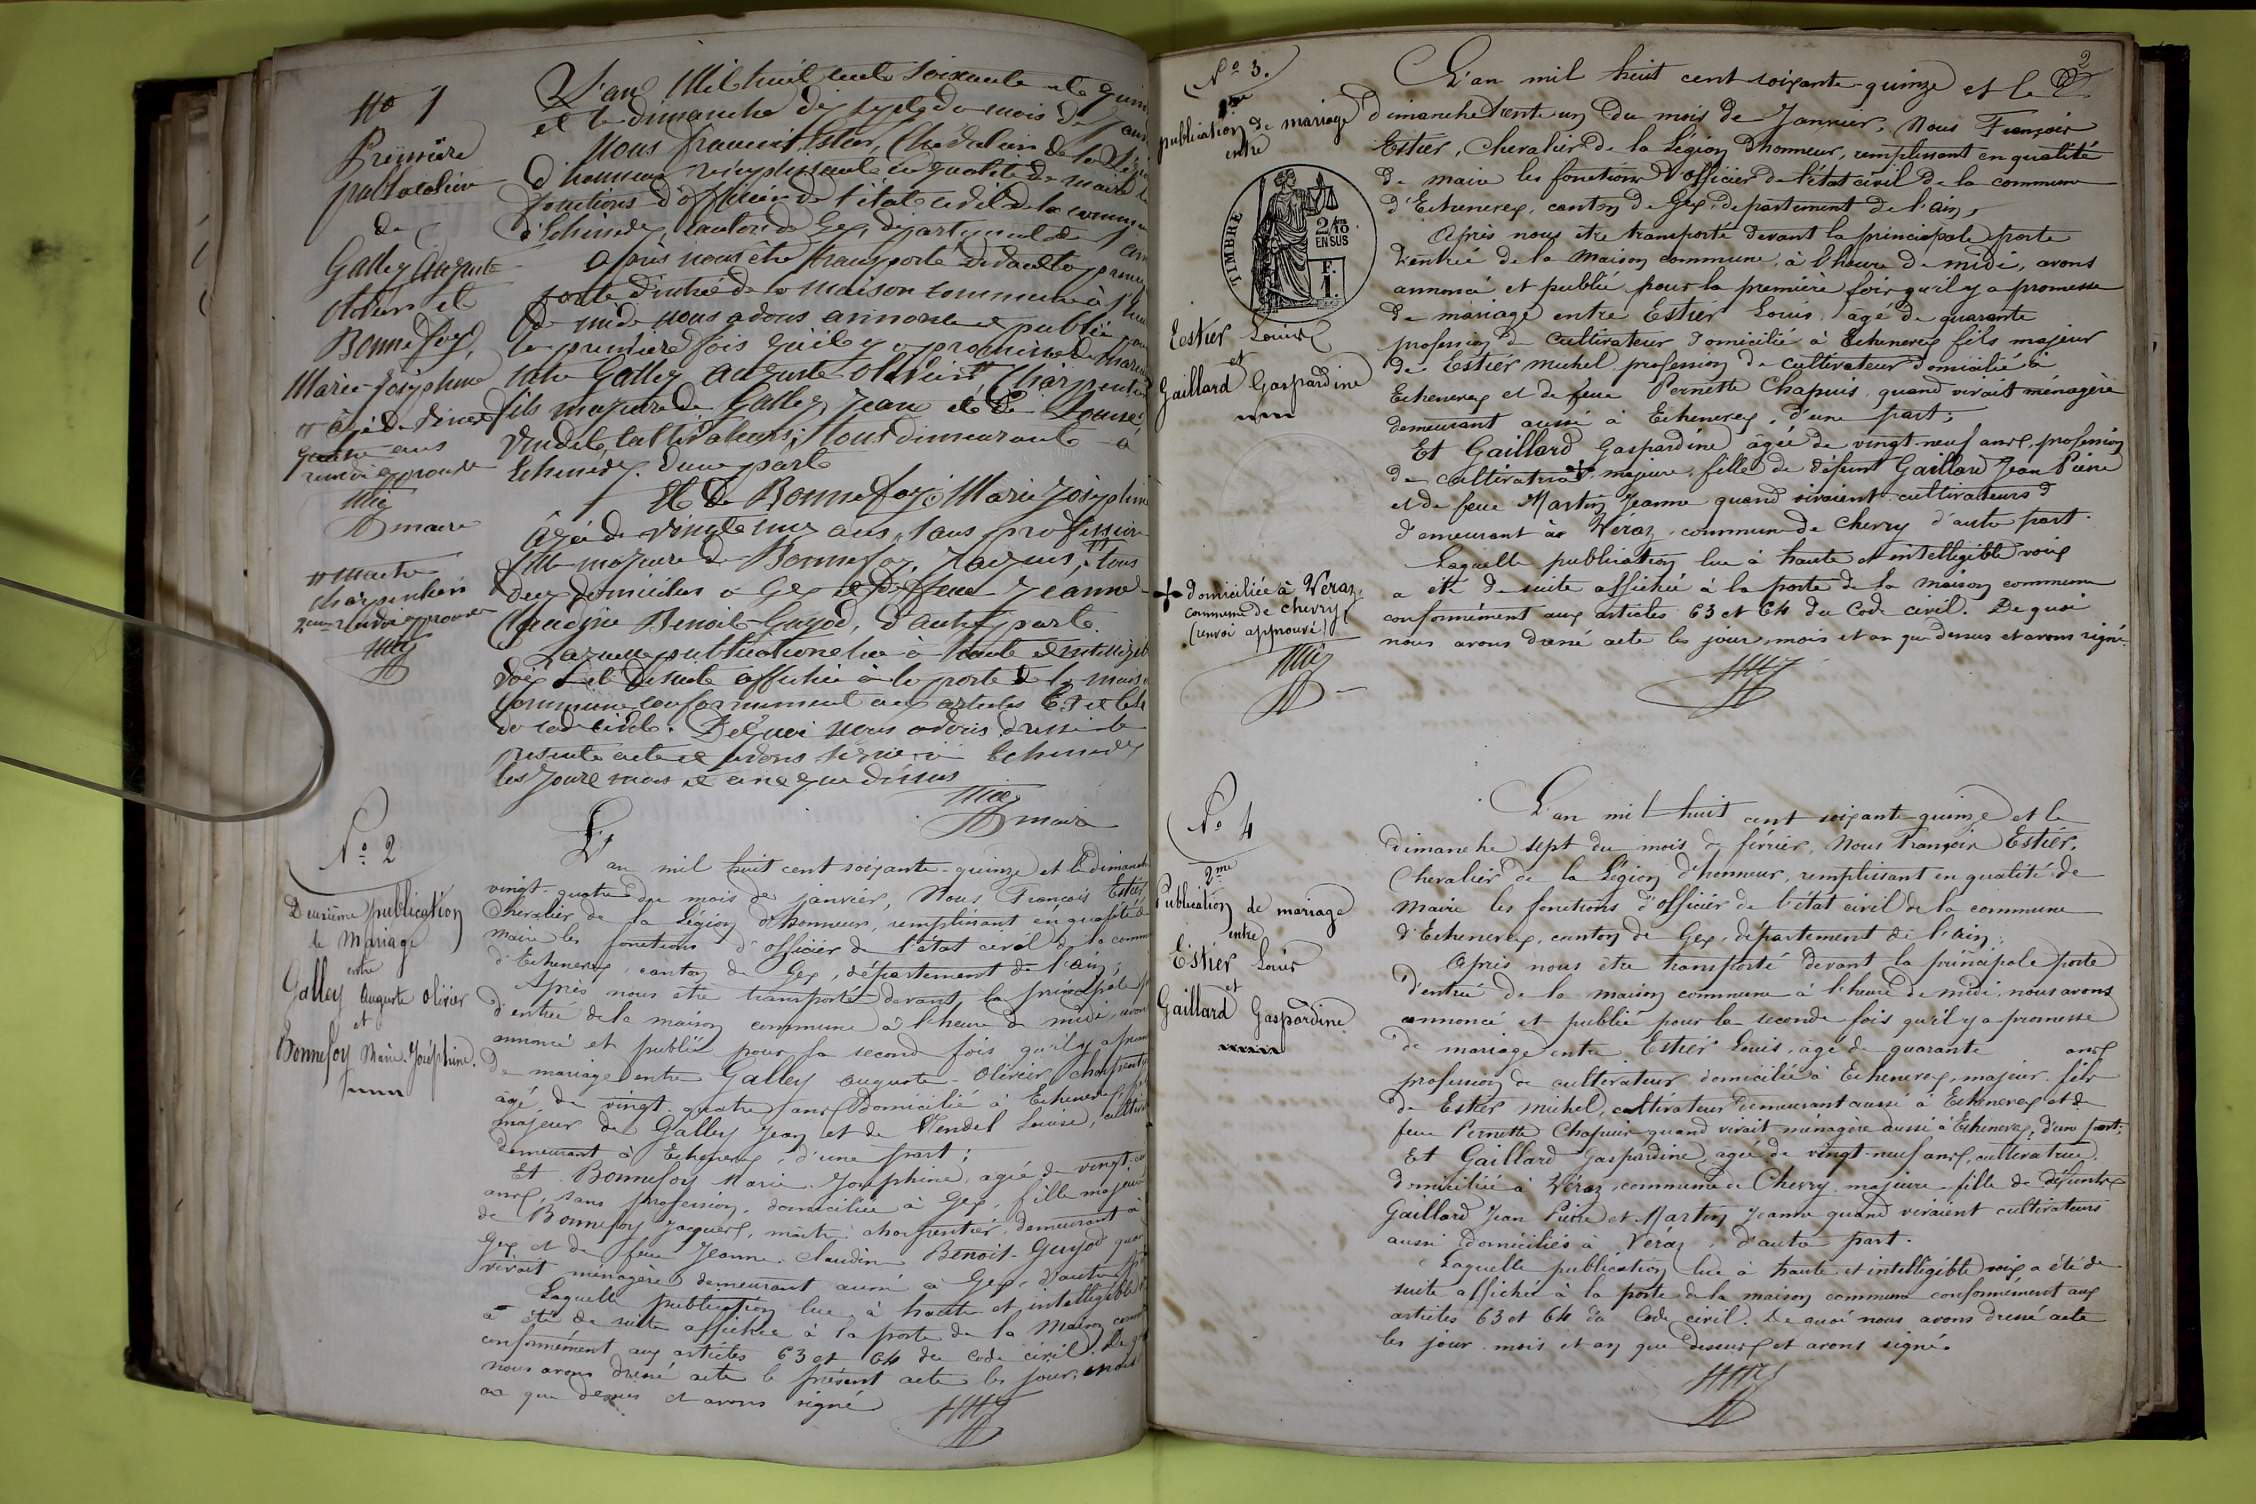 No 1
Première
publication
de
Galley Auguste
Olivier et
Bonnefoy,
Marie Josephine
# agé de vingt
quatre ans
renvoi approuvé
maire
# maitre
charpentier
2eme renvoi approuvé
L'an Mil huit cent soixante et quin
et le dimanche dix sept du mois de jan
Nous francois Estier, Chevalier de la Légi
d'honneur remplissant en qualité de maire le
fonctions d'officier de l'état civil de la commun
d'Echenevex canton de Gex, département de l'ain
Après nous être transporté devant la prince
porte d'entrée de la maison commune à l'heu
de midi nous avons annoncé et publié pou
la première fois qu'il y a promesse de mariag
entre Galley Auguste Olivier # Charpentier
fils majeur de Galley Jean et de Louise
Vendel cultivateurs; tous demeurant à
Echenevex. d'une part
Et de Bonnefoy Marie Joséphine
agée de vingt un ans, sans profession
fille majeure de Bonnefoy, Jaques, # tous
deux domiciliés a Gex et de feue Jeanne
Claudine Benoit-Guyod, d'autre part.
Laquelle publication lue à haute et intelligib
voix a été de suite affichée à la porte de la mais
commune conformément aux articles 63 et 64
du code civil. De quoi nous avons dressé le
présent acte et avons signé à Echenevex
les jours mois et an que dessus
maire
No 2
Deuxième publication
de Mariage
entre
Galley Auguste Olivier
et
Bonnefoy Marie-Joséphine.
L'an mil huit cent soixante-quinze et le dimanche
vingt-quatre du mois de janvier, Nous François Estier
Chevalier de la Légion d'honneur, remplissant en qualité de
maire les fonctions d'officier de l'état civil de la comm
d'Echenevex, canton de Gex, département de l'ain;
Après nous être transporté devant la principale p
d'entrée de la maison commune à l'heure de midi, avons
annoncé et publié pour la second fois qu'il y a prom
de mariage entre Galley Auguste-Olivier, charpentier
agé de vingt-quatre ans domicilié à Echenevex, fils
majeur de Galley Jean et de Vendel Louise, cultiv
demeurant à Echenevex, d'une part;
Et Bonnefoy Marie Joséphine, agée de vingt-un
ans, sans profession, domiciliée à Gex, fille majeure
de Bonnefoy Jacques, maitre charpentier, demeurant à
Gex et de feue Jeanne Claudine Benoit-Guyod quan
vivait ménagère demeurant aussi à Gex, d'autre p
Laquelle publication lue à haute et intelligible v
a été de suite affichée à la porte de la maison commu
conformément aux articles 63 et 64 du Code civil. De q
nous avons dressé acte le présent acte les jour, mois
an que dessus et avons signé
2
No 3.
1ère
publication de mariage
entre
TIMBRE
2/10 EN SUS
F. 1.
Estier Louis
et
Gaillard Gaspardine
+ domiciliée à Veraz,
commune de Chevry
(renvoi approuvé)
L'an mil huit cent soixante-quinze et le
dimanche trente un du mois de Janvier, Nous François
Estier, Chevalier de la Légion d'honneur, remplissant en qualité
de maire les fonctions d'officier de l'état civil de la commune
d'Echenevex, canton de Gex, département de l'ain,
Après nous être transporté devant la principale porte
d'entrée de la maison commune, à l'heure de midi, avons
annoncé et publié pour la première fois qu'il y a promesse
de mariage entre Estier Louis, agé de quarante
profession de cultivateur domicilié à Echenevex fils majeur
de Estier Michel profession de cultivateur domicilié à
Echenevex et de feue Pernette Chapuis quand vivait ménagère
demeurant aussi à Echenevex, d'une part;
Et Gaillard Gaspardine agée de vingt-neuf ans, profession
de cultivatrice + majeure, fille de défunt Gaillard Jean Pierre
et de feue Martin Jeanne quand vivaient cultivateurs
demeurant à Véraz, commune de Chevry d'autre part.
Laquelle publication lue à haute et intelligible voix
a été de suite affichée à la porte de la maison commune
conformément aux articles 63 et 64 du Code civil. De quoi
nous avons dressé acte les jour, mois et an que dessus et avons signé.
No 4
2me
Publication de mariage
entre
Estier Louis
et
Gaillard Gaspardine
L'an mil huit cent soixante-quinze et le
dimanche sept du mois de février, Nous François Estier,
Chevalier de la Légion d'honneur, remplissant en qualité de
Maire les fonctions d'officier de l'état civil de la commune
d'Echenevex, canton de Gex, département de l'ain;
Après nous être transporté devant la principale porte
d'entrée de la maison commune à l'heure de midi, nous avons
annoncé et publié pour la seconde fois qu'il y a promesse
de mariage entre Estier Louis, agé de quarante ans
profession de cultivateur domicilié à Echenevex, majeur, fils
de Estier Michel, cultivateur demeurant aussi à Echenevex et de
feue Pernette Chapuis quand vivait ménagère aussi à Echenevex, d'une part;
Et Gaillard Gaspardine, agée de vingt-neuf ans, cultivatrice,
domiciliée à Véraz, commune de Chevry majeure fille de défunts
Gaillard Jean Pierre et Martin Jeanne quand vivaient cultivateurs
aussi domiciliés à Véraz, d'autre part.
Laquelle publication lue à haute et intelligible voix a été de
suite affichée à la porte de la maison commune conformément aux
articles 63 et 64 du Code civil. De quoi nous avons dressé acte
les jour mois et an que dessus et avons signé.